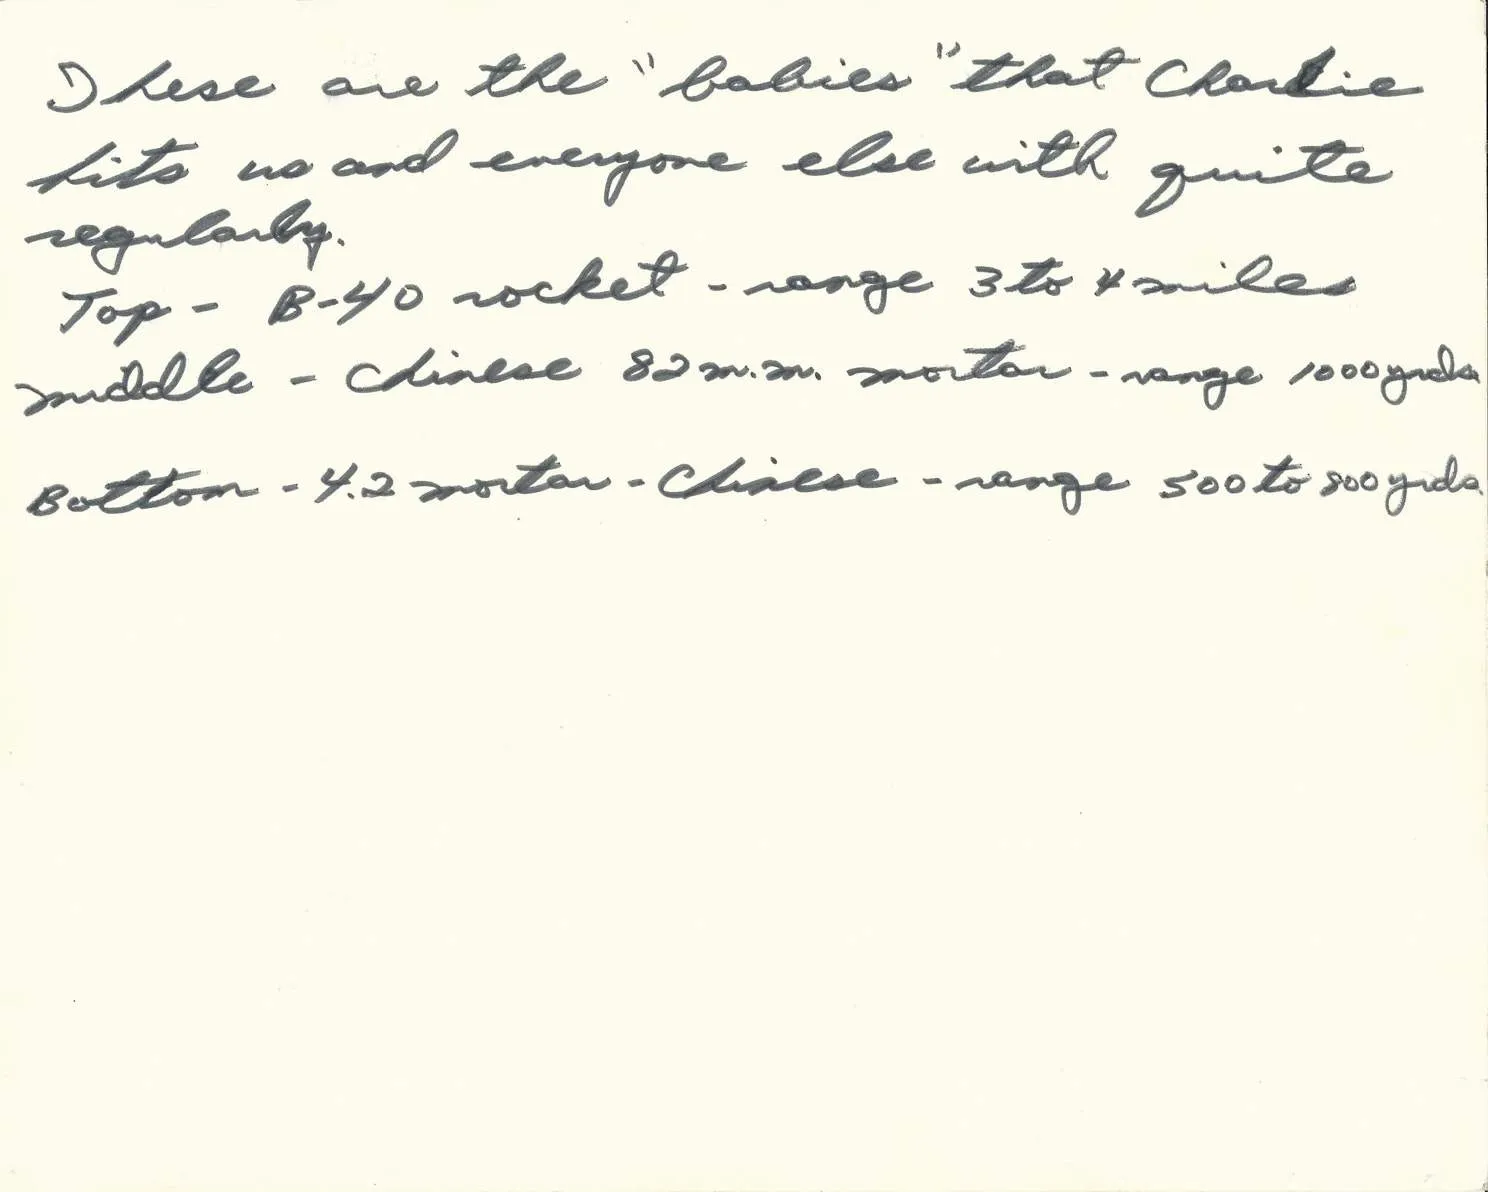 These are the "babies" that Charlie
hits us and everyone else with quite
regularly.
Top - B-40 rocket - range 3 to 4 miles
middle - Chinese 82 m.m. mortar - range 1000 yrds.
Bottom - 4.2 mortar - Chinese - range 500 to 800 yrds.